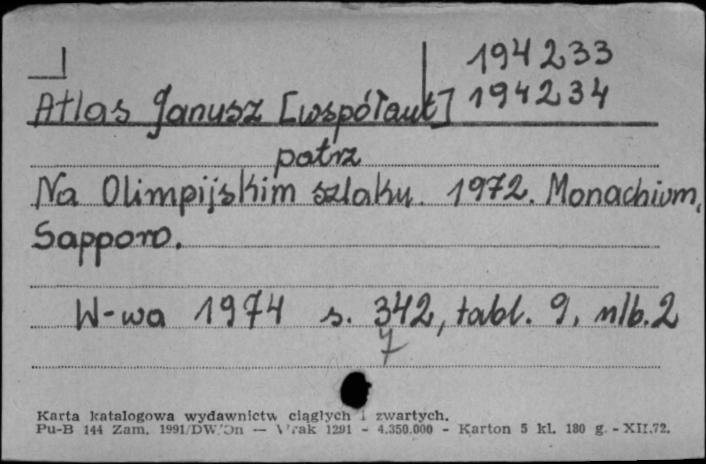 194233
Atlas Janusz [współaut] 194234
patrz
Na Olimpijskim szlaku. 1972. Monachium,
Sapporo.
W-wa 1974 s. 342, tabl. 9, nlb. 2
7
Karta katalogowa wydawnictw ciągłych i zwartych.
Pu-B 144 Zam. 1991/DW/Dn — 1291 - 4.350.000 - Karton 5 kl. 180 g. - XII.72.